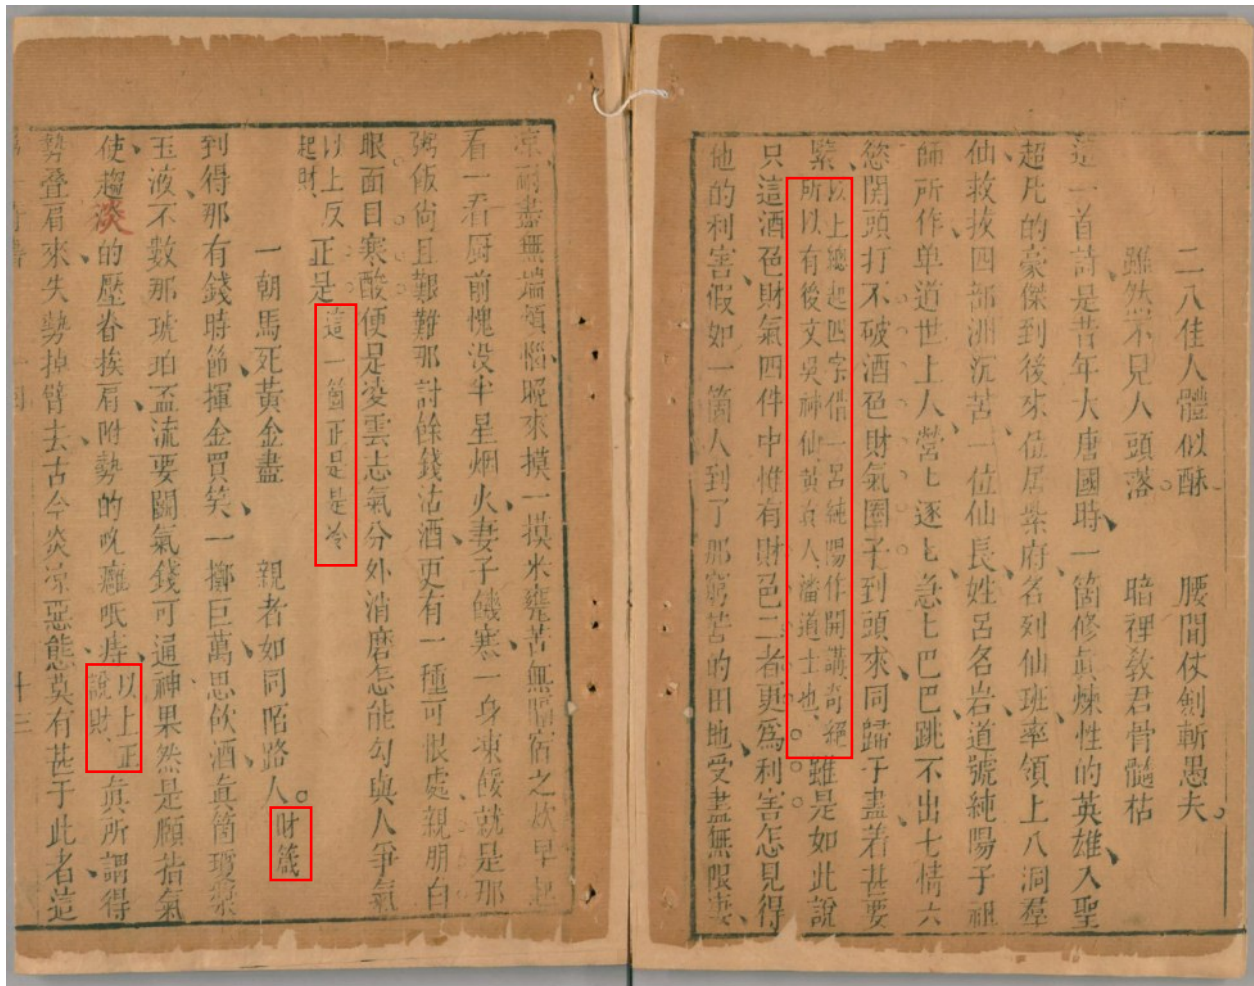 二八佳人體似酥 腰間仗劍斬愚夫
雖然不見人頭落 暗裡教君骨髓枯
這一首詩是昔年大唐國時一箇修眞煉性的英雄入聖
超凡的豪傑到後來位居紫府名列仙班率領上八洞羣
仙救拔四部洲沉苦一位仙長姓呂名岩道號純陽子祖
師所作单道世上人營七逐七急七巴巴跳不出七情六
慾関頭打不破酒色財氣圈子到頭來同歸于盡着甚要
緊以上總起四字借一呂純陽作開講奇絕所以有後文吳神仙黃眞人潘道士也雖是如此說
只這酒色財氣四件中惟有財色二者更爲利害怎見得
他的利害假如一箇人到了那窮苦的田地受盡無限凄
凉耐盡無端頓惱晚來摸一摸米甕苦無隔宿之炊早起
看一看厨前愧没半星烟火妻子饑寒一身凍餒就是那
粥飯尙且艱難那討餘錢沽酒更有一種可恨處親朋白
眼面目寒酸便是凌雲志氣分外消磨怎能勾與人爭氣
以上反起財正是這一箇正是是冷
一朝馬死黃金盡 親者如同陌路人財箴
到得那有錢時節揮金買笑一擲巨萬思飲酒眞箇瓊漿
玉液不數那琥珀盃流要鬬氣錢可通神果然是頤指氣
使趨淡的壓脊挨肩附勢的吮癰舐痔以上正說財眞所謂得
勢叠肩來失勢掉臂去古今炎凉惡態莫有甚于此者這